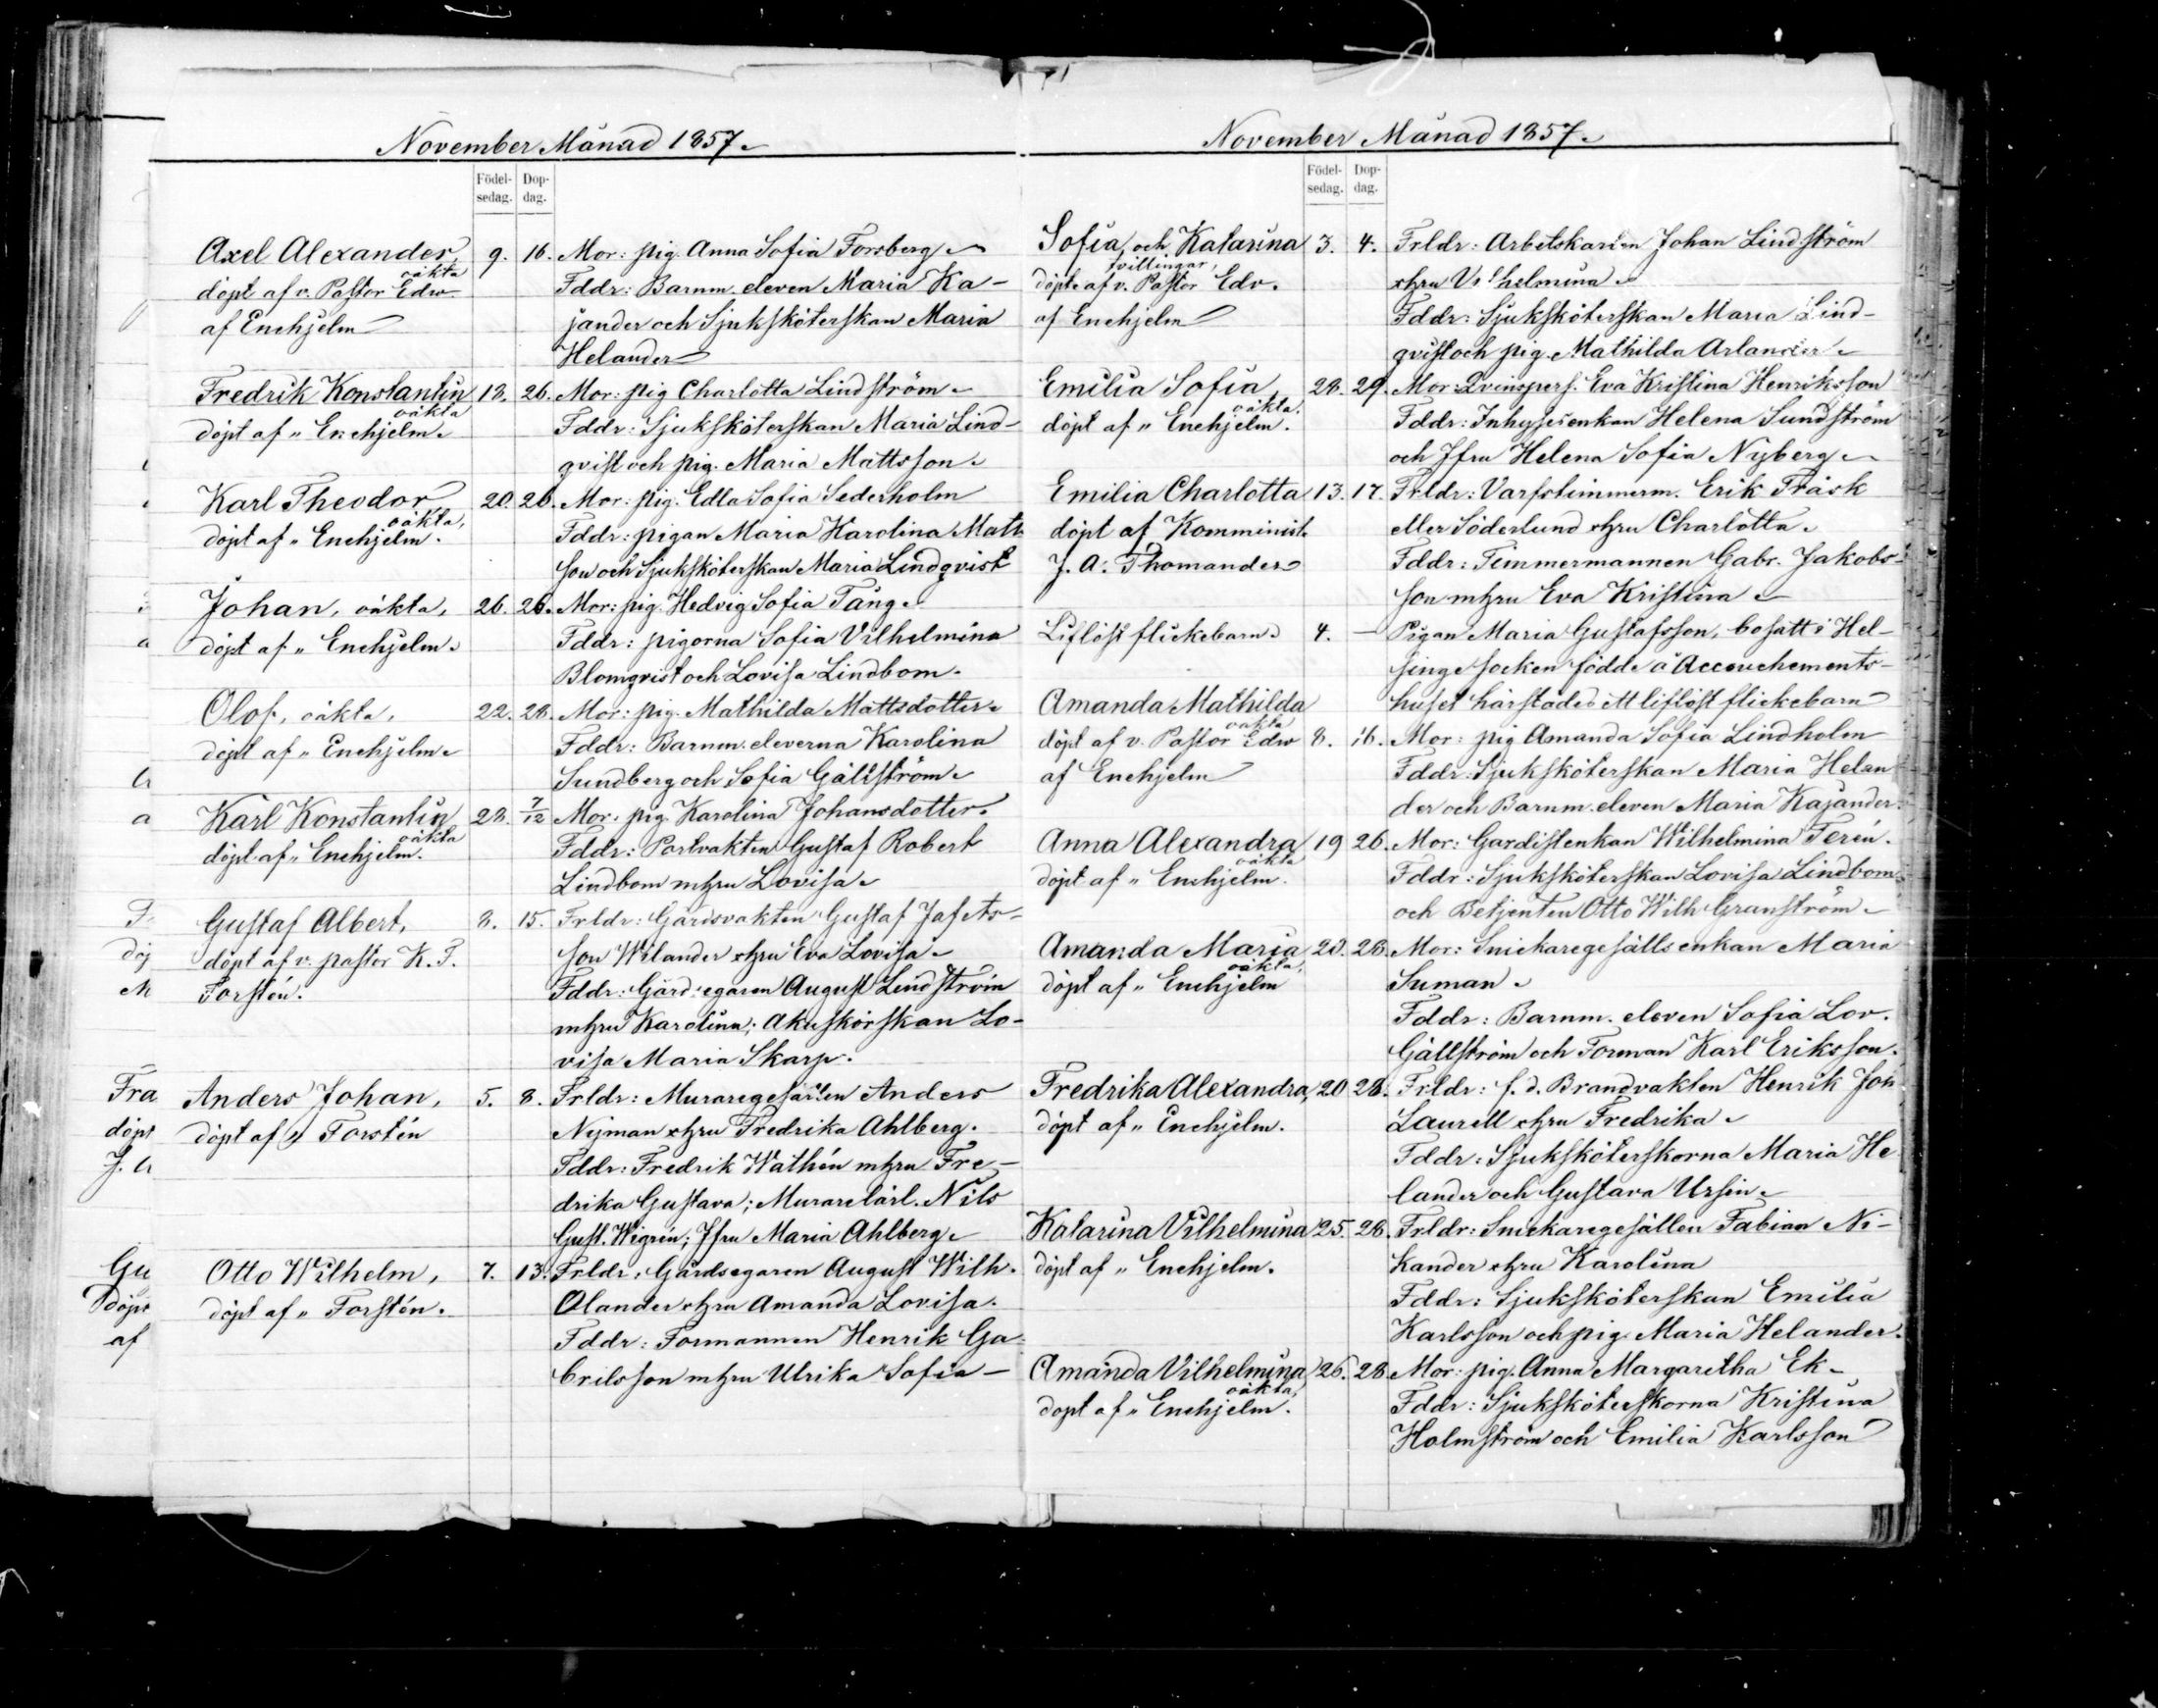 November Månad 1857.
Födel- Dop-
sedag. dag.
Axel Alexander, 9. 16. Mor: pig. Anna Sofia Forsberg
oäkta
döpt af v. Pastor Edw. Fddr: Barnm. eleven Maria Ka-
af Enehjelm jander och Sjuksköterskan Maria
Helander
Fredrik Konstantin 18. 26. Mor: pig Charlotta Lindström.
oäkta
döpt af „ Enehjelm. Fddr: Sjuksköterskan Maria Lind-
qvist och pig. Maria Mattsson.
Karl Theodor 20. 26. Mor: pig. Edla Sofia Sederholm
oäkta,
döpt af „ Enehjelm. Fddr: pigan Maria Karolina Matts
son och Sjuksköterskan Maria Lindqvist
Johan, oäkta, 26. 26. Mor: pig. Hedvig Sofia Täng.
döpt af „ Enehjelm. Fddr: pigorna Sofia Vilhelmina
Blomqvist och Lovisa Lindbom.
Olof, oäkta, 22. 28. Mor: pig. Mathilda Mattsdotter.
döpt af „ Enehjelm. Fddr: Barnm. eleverna Karolina
Sundberg och Sofia Gällström.
Karl Konstantin 28. 7/12 Mor: pig. Karolina Johansdotter.
oäkta
döpt af „ Enehjelm. Fddr: Portvakten Gustaf Robert
Lindbom m hru Lovisa.
Gustaf Albert, 8. 15. Frldr: Gårdsvakten Gustaf Jafets-
döpt af v. pastor K. T. son Wilander o hru Eva Lovisa.
Forstén. Fddr: Gårdsegaren August Lindström
m hru Karolina; Akuskörskan Lo-
visa Maria Skarp.
Anders Johan, 5. 8. Frldr: Muraregesällen Anders
döpt af „ Forstén Nyman o hru Fredrika Ahlberg.
Fddr: Fredrik Wathén m hru Fre-
drika Gustava; Murarelärl. Nils
Gust. Wigrén; Jfru Maria Ahlberg.
Otto Wilhelm, 7. 13. Frldr: Gårdsegaren August Wilh.
döpt af „ Forstén. Olander o hru Amanda Lovisa.
Fddr: Formannen Henrik Ga-
brilsson m hru Ulrika Sofia
Fra
döpt
Gu
döpt
af
November Månad 1857.
Födel- Dop-
sedag. dag.
Sofia, och Katarina 3. 4. Frldr: Arbetskarlen Johan Lindström
tvillingar,
döpt. af v. Pastor Edv. o hru Vilhelmina
af Enehjelm Fddr: Sjuksköterskan Maria Lind-
qvist och pig. Mathilda Arlander
Emilia Sofia, 28. 29. Mor: Qvinspers. Eva Kristina Henriksson
oäkta.
döpt af „ Enehjelm. Fddr: Inhysesenkan Helena Sundström
och Jfru Helena Sofia Nyberg
Emilia Charlotta 13. 17. Frldr: Varfstimmerm. Erik Träsk
döpt af Komminist. eller Söderlund o hru Charlotta.
J. A. Thomander Fddr: Timmermannen Gabr. Jakobs-
son m hru Eva Kristina
Liflöst flickebarn 4. — Pigan Maria Gustafsson, bosatt i Hel-
singe socken födde å Accouchements-
huset härstädes ett liflöst flickebarn
Amanda Mathilda
oäkta
döpt af v. Pastor Edw 8. 16. Mor: pig Amanda Sofia Lindholm
af Enehjelm Fddr: Sjuksköterskan Maria Helan
der och Barnm. eleven Maria Kajander.
Anna Alexandra 19 26. Mor: Gardistenkan Wilhelmina Terén.
oäkta
döpt af „ Enehjelm. Fddr: Sjuksköterskan Lovisa Lindbom
och Betjenten Otto Wilh Granström.
Amanda Maria 20. 28. Mor: Snickaregesällsenkan Maria
oäkta,
döpt af „ Enehjelm Suman.
Fddr: Barnm. eleven Sofia Lov.
Gällström och Forman Karl Eriksson.
Fredrika Alexandra, 20 28. Frldr: f. d. Brandvakten Henrik Joh
döpt af „ Enehjelm. Laurell o hru Fredrika.
Fddr: Sjuksköterskorna Maria He
lander och Gustava Ursin.
Katarina Vilhelmina 25. 28. Frldr: Snickaregesällen Fabian Ni-
döpt af „ Enehjelm. kander o hru Karolina
Fddr: Sjuksköterskan Emilia
Karlsson och pig. Maria Helander.
Amanda Vilhelmina 26. 28 Mor: pig. Anna Margaretha Ek-
oäkta,
döpt af „ Enehjelm. Fddr: Sjuksköterskorna Kristina
Holmström och Emilia Karlsson